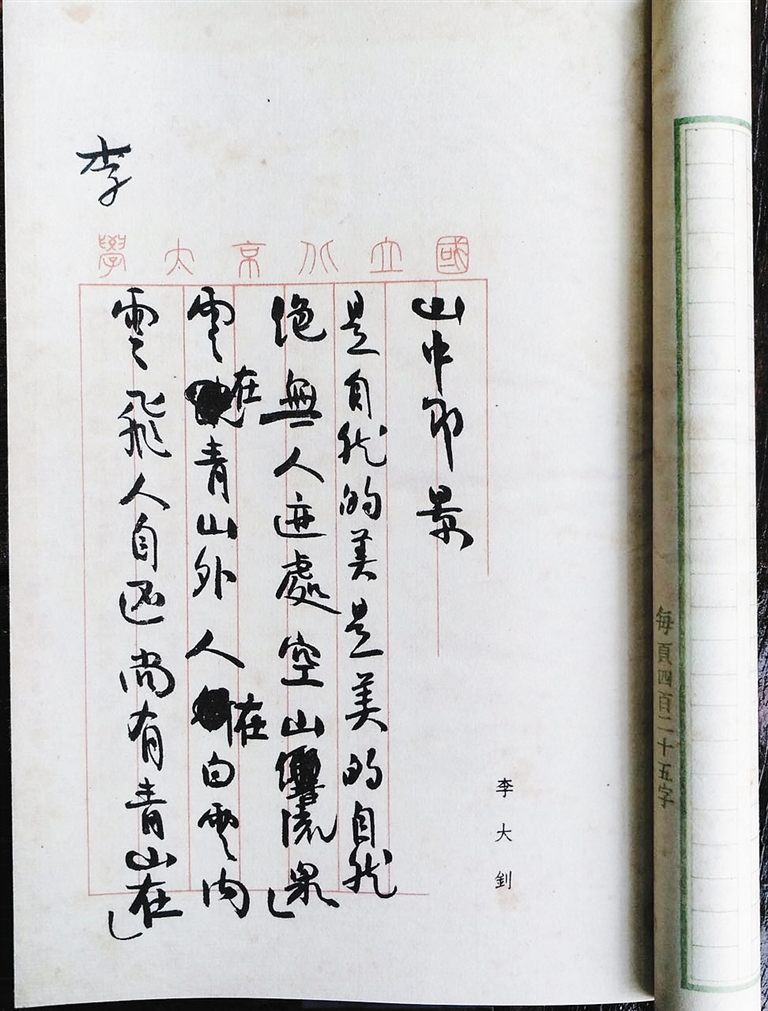 每頁四百二十五字
李大釗
國立北京大學
山中即景
是自然的美是美的自然
絶無人迹處空山響流泉
雲在青山外人在白雲内
雲飛人自還尚有青山在
李